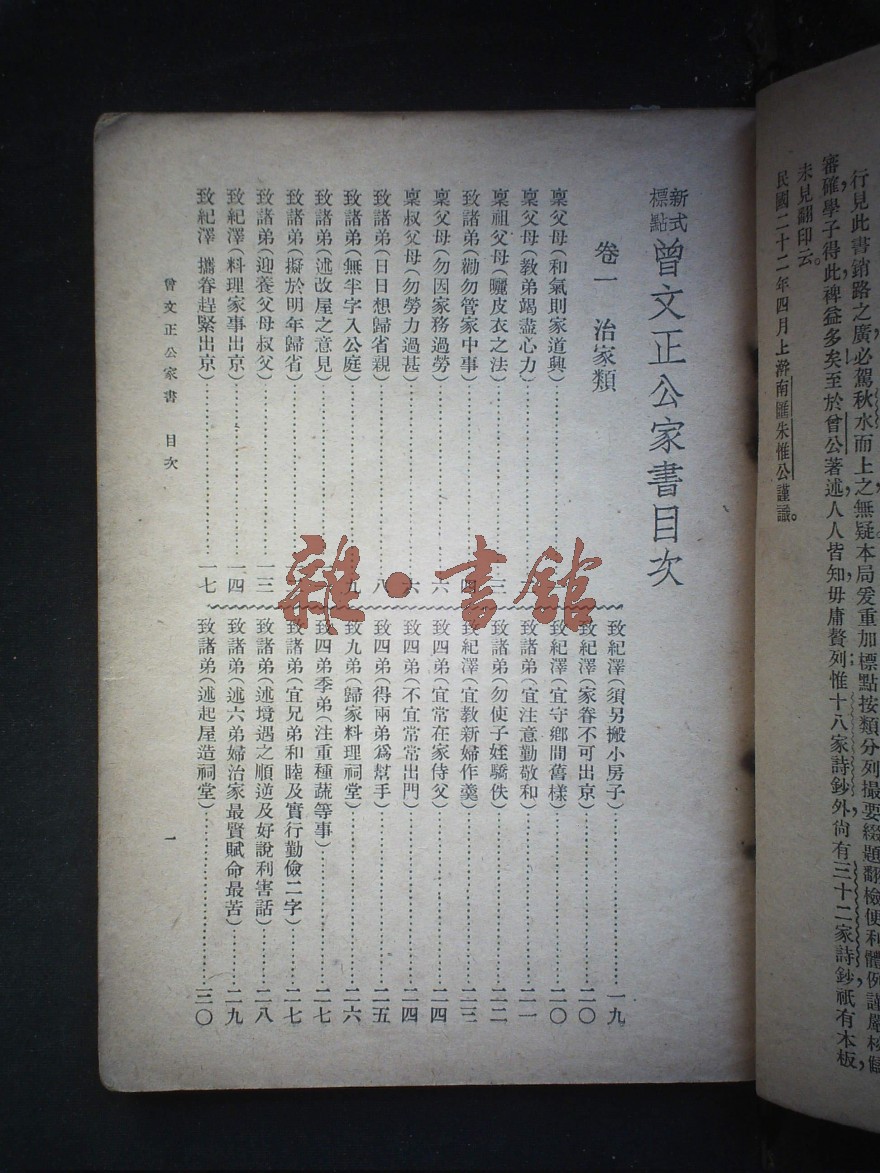 行見此書銷路之廣必駕秋水而上之無疑本局爰重加標點按類分列撮要綴題翻檢便利體例謹嚴校讎
審確學子得此裨益多矣至於曾公著述人人皆知毋庸贅列惟十八家詩鈔外尚有三十二家詩鈔祇有木板
未見翻印云。
民國二十二年四月上澣南匯朱惟公謹識。
新式標點曾文正公家書目次
卷一 治家類
稟父母(和氣則家道興)
稟父母(教弟竭盡心力)
稟祖父母(曬皮衣之法)三
致諸弟(勸勿管家中事)四
稟父母(勿因家務過勞)六
稟叔父母(勿勞力過甚)六
致諸弟(日日想歸省親)八
致諸弟(無半字入公庭)九
致諸弟(述改屋之意見)
致諸弟(擬於明年歸省)
致諸弟(迎養父母叔父)一三
致紀澤(料理家事出京)一四
致紀澤(攜眷趕緊出京)一七
致紀澤(須另搬小房子)一九
致紀澤(家眷不可出京)二〇
致紀澤(宜守鄉間舊樣)二〇
致諸弟(宜注意勤敬和)二一
致諸弟(勿使子姪驕佚)二二
致紀澤(宜教新婦作羹)二三
致四弟(宜常在家侍父)二四
致四弟(不宜常常出門)二四
致四弟(得兩弟爲幫手)二五
致九弟(歸家料理祠堂)二六
致四弟季弟(注重種蔬等事)二七
致諸弟(宜兄弟和睦及實行勤儉二字)二七
致諸弟(述境遇之順逆及好說利害話)二八
致諸弟(述六弟婦治家最賢賦命最苦)二九
致諸弟(述起屋造祠堂)三〇
曾文正公家書 目次
一
雜·書館